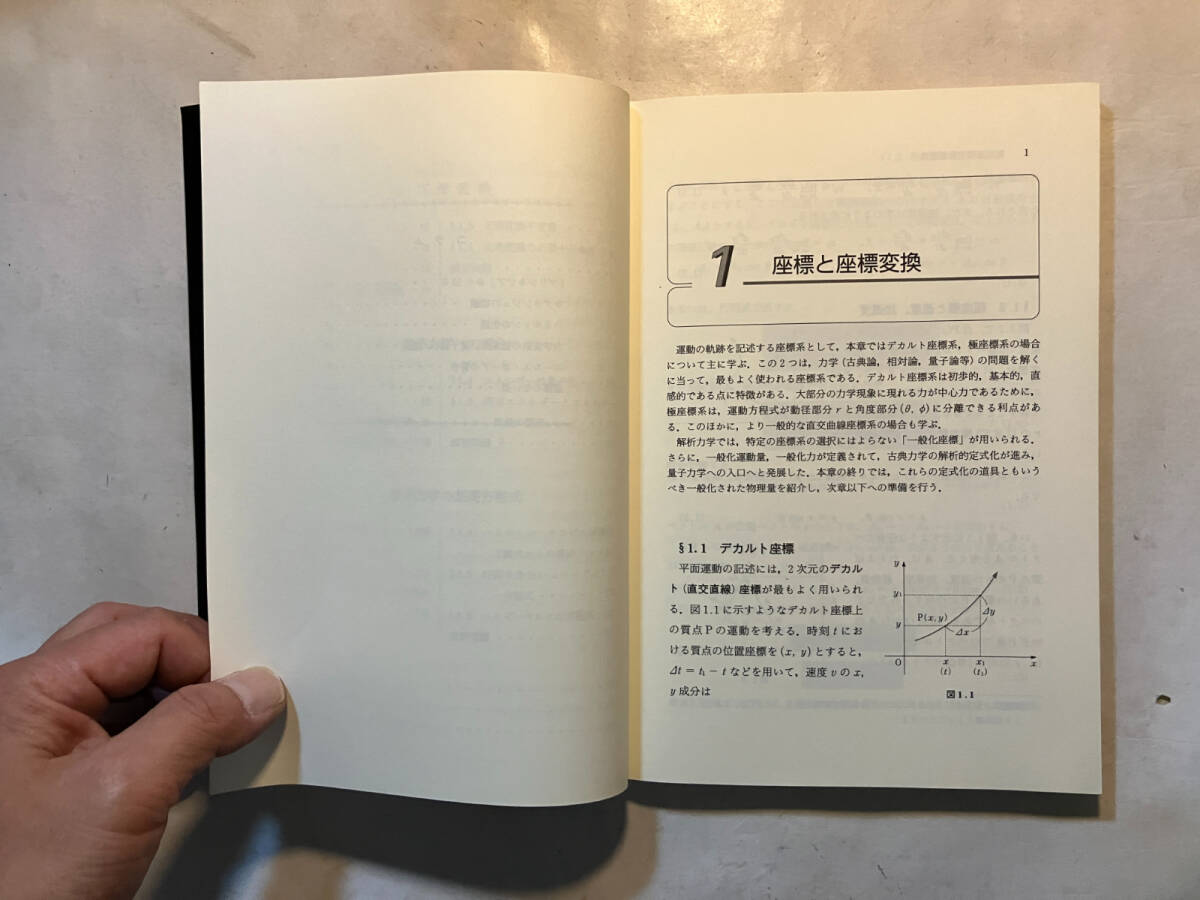 1
1 座標と座標変換
運動の軌跡を記述する座標系として，本章ではデカルト座標系，極座標系の場合
について主に学ぶ．この2つは，力学(古典論，相対論，量子論等)の問題を解く
に当って，最もよく使われる座標系である．デカルト座標系は初歩的，基本的，直
感的である点に特徴がある．大部分の力学現象に現れる力が中心力であるために，
極座標系は，運動方程式が動径部分 r と角度部分(θ, φ)に分離できる利点があ
る．このほかに，より一般的な直交曲線座標系の場合も学ぶ．
解析力学では，特定の座標系の選択にはよらない「一般化座標」が用いられる．
さらに，一般化運動量，一般化力が定義されて，古典力学の解析的定式化が進み，
量子力学への入口へと発展した．本章の終りでは，これらの定式化の道具ともいう
べき一般化された物理量を紹介し，次章以下への準備を行う．
§1.1 デカルト座標
平面運動の記述には，2次元のデカル
ト(直交直線)座標が最もよく用いられ
る．図1.1に示すようなデカルト座標上
の質点Pの運動を考える．時刻 t にお
ける質点の位置座標を(x, y)とすると，
Δt = t₁ − t などを用いて，速度 v の x,
y 成分は
y
y₁
P(x, y)
Δy
y
Δx
O
x
x₁
x
(t)
(t₁)
図1.1